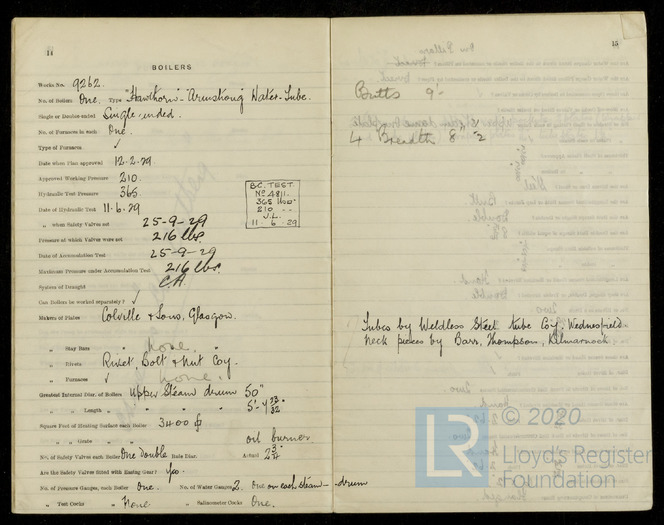 14
BOILERS
Works No. 9262.
No. of Boilers One. Type "Hawthorn-Armstrong" Water-Tube.
Single or Double-ended Single-ended.
No. of Furnaces in each One.
Type of Furnaces ✓
Date when Plan approved 12.2.29
Approved Working Pressure 210.
Hydraulic Test Pressure 365
Date of Hydraulic Test 11.6.29
" when Safety Valves set 25-9-29
Pressure at which Valves were set 216 lbs.
Date of Accumulation Test 25-9-29
Maximum Pressure under Accumulation Test 216 lbs.
System of Draught C.A.
Can Boilers be worked separately? ✓
Makers of Plates Colville & Sons, Glasgow.
" Stay Bars None.
" Rivets Rivet, Bolt & Nut Coy.
" Furnaces ✓ None.
Greatest Internal Diam. of Boilers Upper Steam drum 50"
" " Length " " " "
Square Feet of Heating Surface each Boiler 3400
" " Grate " " oil burner
No. of Safety Valves each Boiler One Double Rule Diam. Actual 2¾
Are the Safety Valves fitted with Easing Gear? Yes.
No. of Pressure Gauges, each Boiler One. No. of Water Gauges 2. One on each steam-drum
" Test Cocks " None " Salinometer Cocks One.
B.C. TEST.
No 4811.
210
J.L.
11 6 29
15
Butts 9'-
4 Breadth 8" 2
Tubes by Weldless Steel Tube Coy, Wednesfield.
Neck pieces by Barr, Thompson, Kilmarnock.
© 2020
LR
Lloyd's Register
Foundation